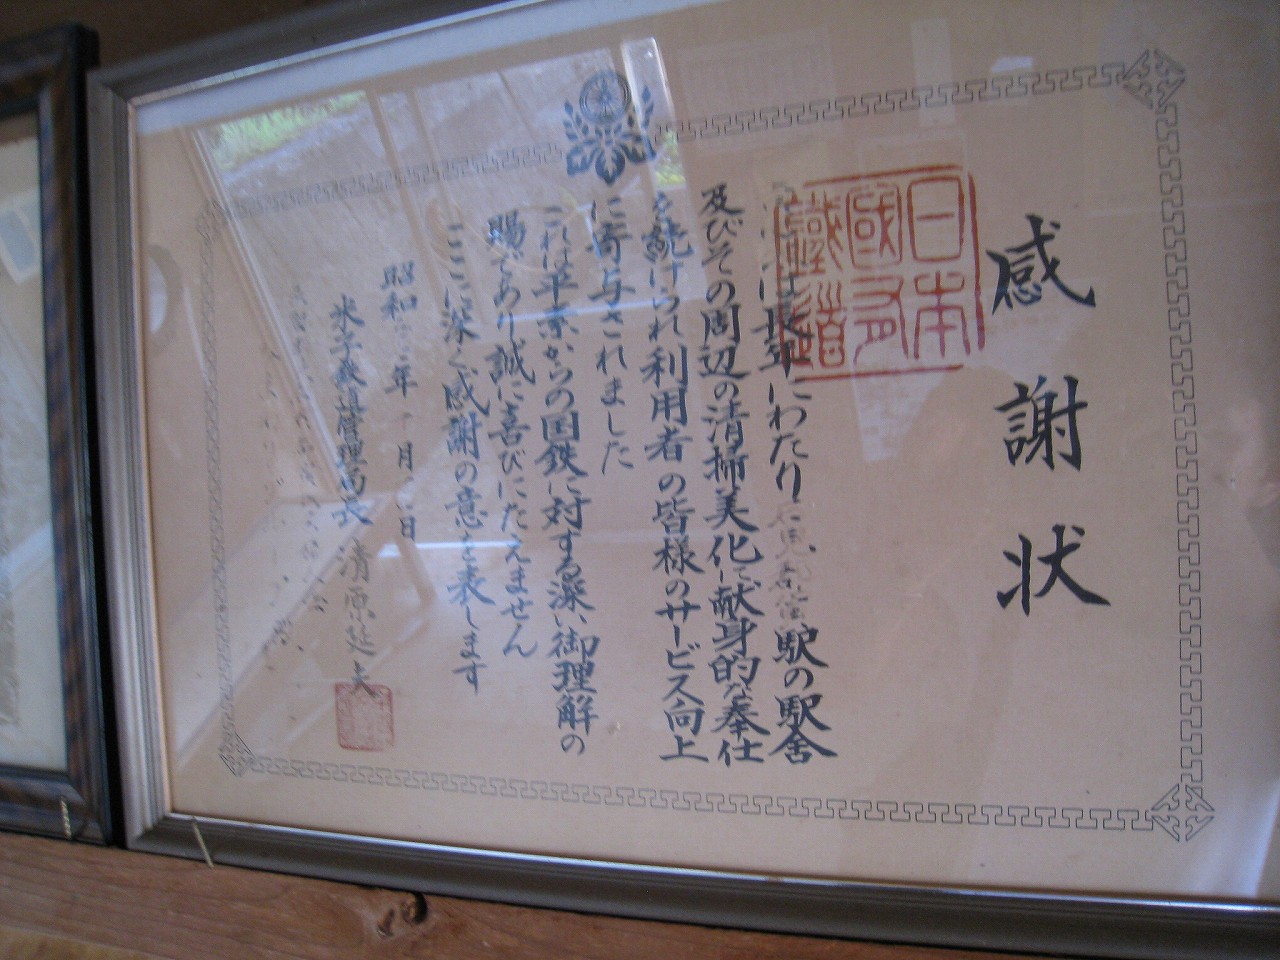 感謝状
日本
國有
鐵道
は長年にわたり石見都賀駅の駅舎
及びその周辺の清掃美化に献身的な奉仕
を続けられ利用者の皆様のサービス向上
に寄与されました
これは平素からの国鉄に対する深い御理解の
賜であり誠に喜びにたえません
ここに深く感謝の意を表します
昭和 年 月 日
米子鉄道管理局長 清原延夫